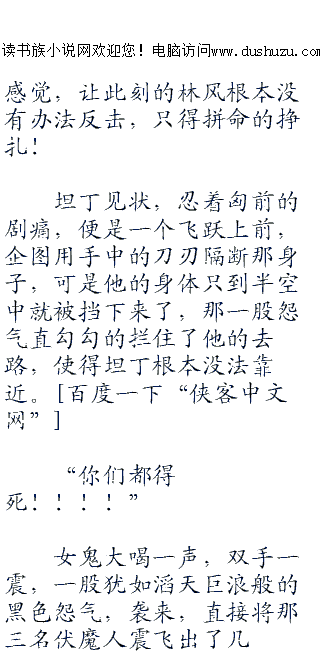 读书族小说网欢迎您！电脑访问www.dushuzu.com
感觉，让此刻的林风根本没
有办法反击，只得拼命的挣
扎！
坦丁见状，忍着匈前的
剧痛，便是一个飞跃上前，
企图用手中的刀刃隔断那身
子，可是他的身体只到半空
中就被挡下来了，那一股怨
气直勾勾的拦住了他的去
路，使得坦丁根本没法靠
近。[百度一下“侠客中文
网”]
“你们都得
死！！！！”
女鬼大喝一声，双手一
震，一股犹如滔天巨浪般的
黑色怨气，袭来，直接将那
三名伏魔人震飞出了几